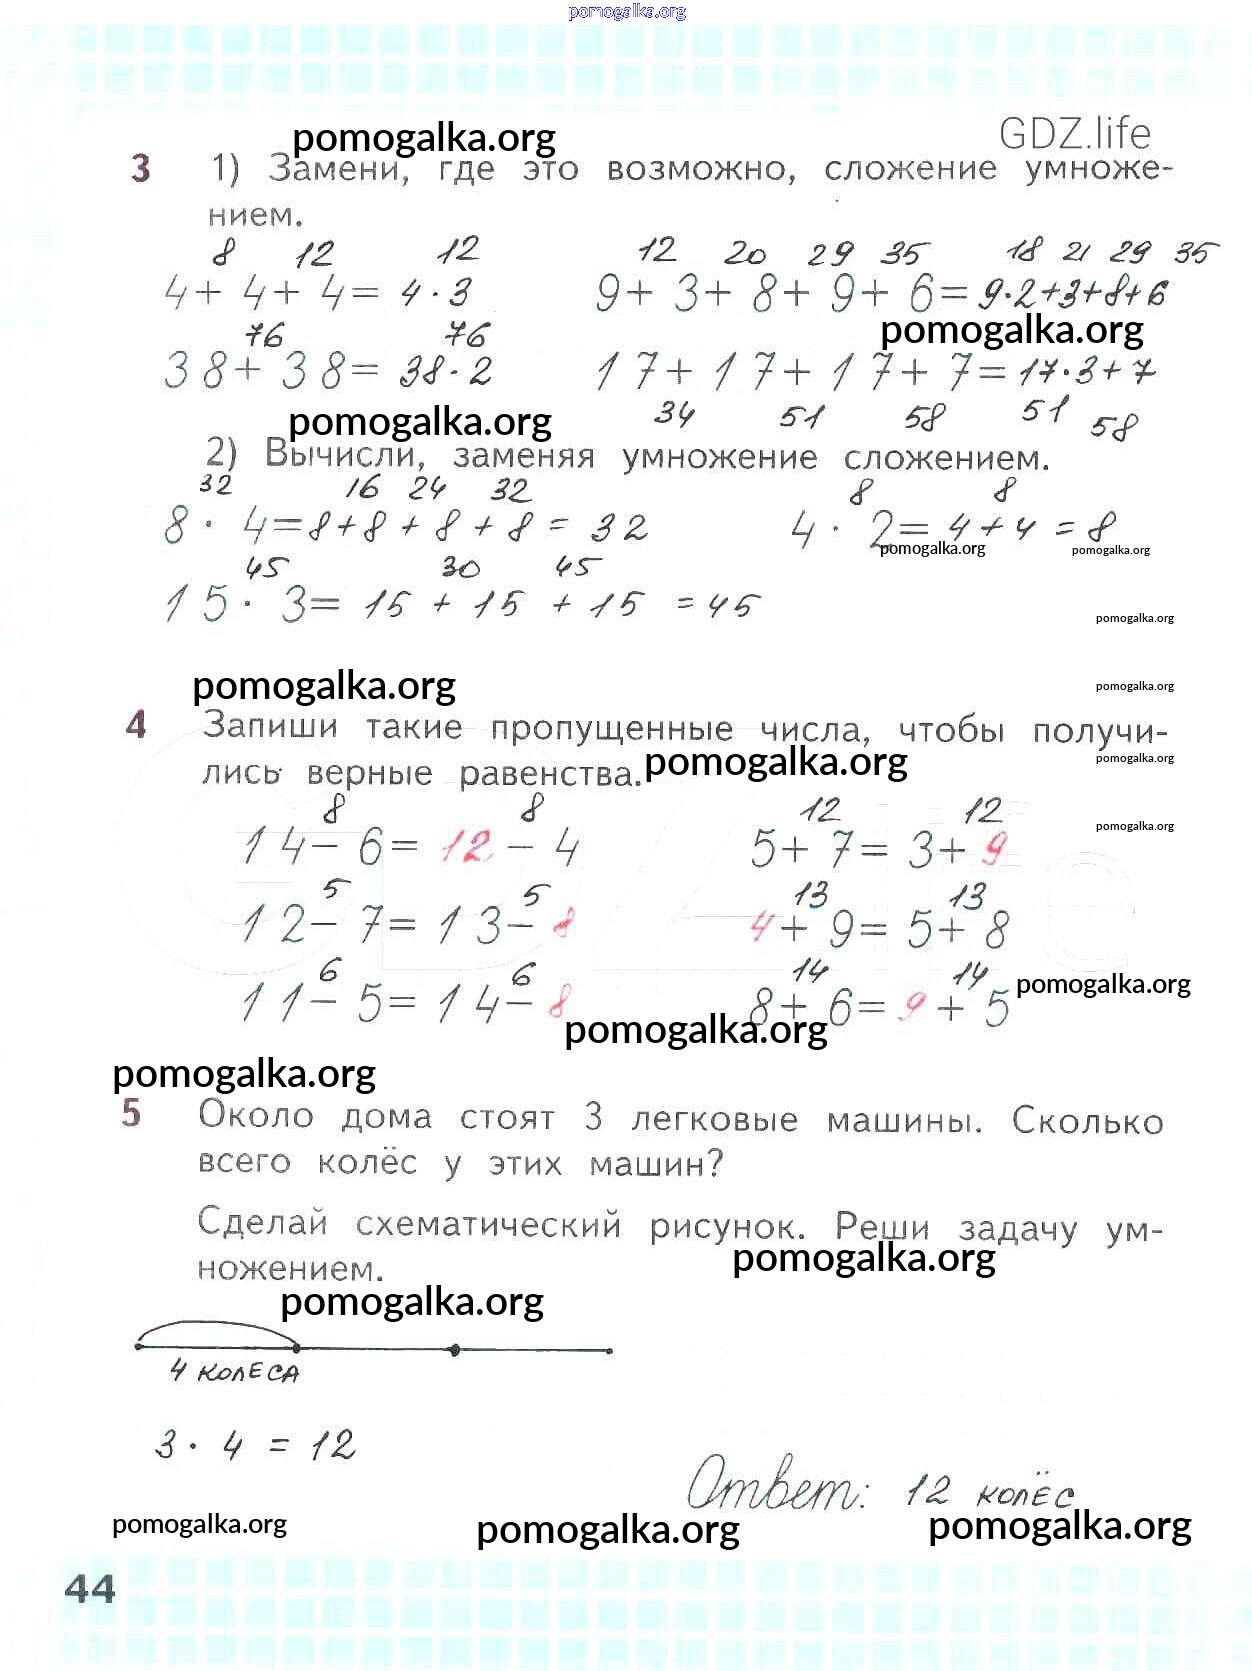 pomogalka.org
pomogalka.org
GDZ.life
3 1) Замени, где это возможно, сложение умноже-
нием.
8 12 12 12 20 29 35 18 21 29 35
4+ 4+ 4= 4·3 9+ 3+ 8+ 9+ 6= 9·2+3+8+6
76 76 pomogalka.org
38+ 38= 38·2 17+ 17+ 17+ 7= 17·3+7
pomogalka.org 34 51 58 51 58
2) Вычисли, заменяя умножение сложением.
32 16 24 32 8 8
8 · 4= 8+8 + 8 + 8 = 32 4 · 2= 4 + 4 = 8
pomogalka.org pomogalka.org
45 30 45
15 · 3= 15 + 15 + 15 = 45
pomogalka.org
pomogalka.org pomogalka.org
4 Запиши такие пропущенные числа, чтобы получи-
лись верные равенства. pomogalka.org pomogalka.org
8 8 12 12
pomogalka.org
14− 6= 12 − 4 5+ 7= 3+ 9
5 5 13 13
12− 7= 13− 8 4+ 9= 5+ 8
6 6 14 14 pomogalka.org
11− 5= 14− 8 8+ 6= 9 + 5
pomogalka.org
pomogalka.org
5 Около дома стоят 3 легковые машины. Сколько
всего колёс у этих машин?
Сделай схематический рисунок. Реши задачу ум-
pomogalka.org
ножением.
pomogalka.org
4 колеса
3 · 4 = 12
Ответ: 12 колёс
pomogalka.org pomogalka.org pomogalka.org
44